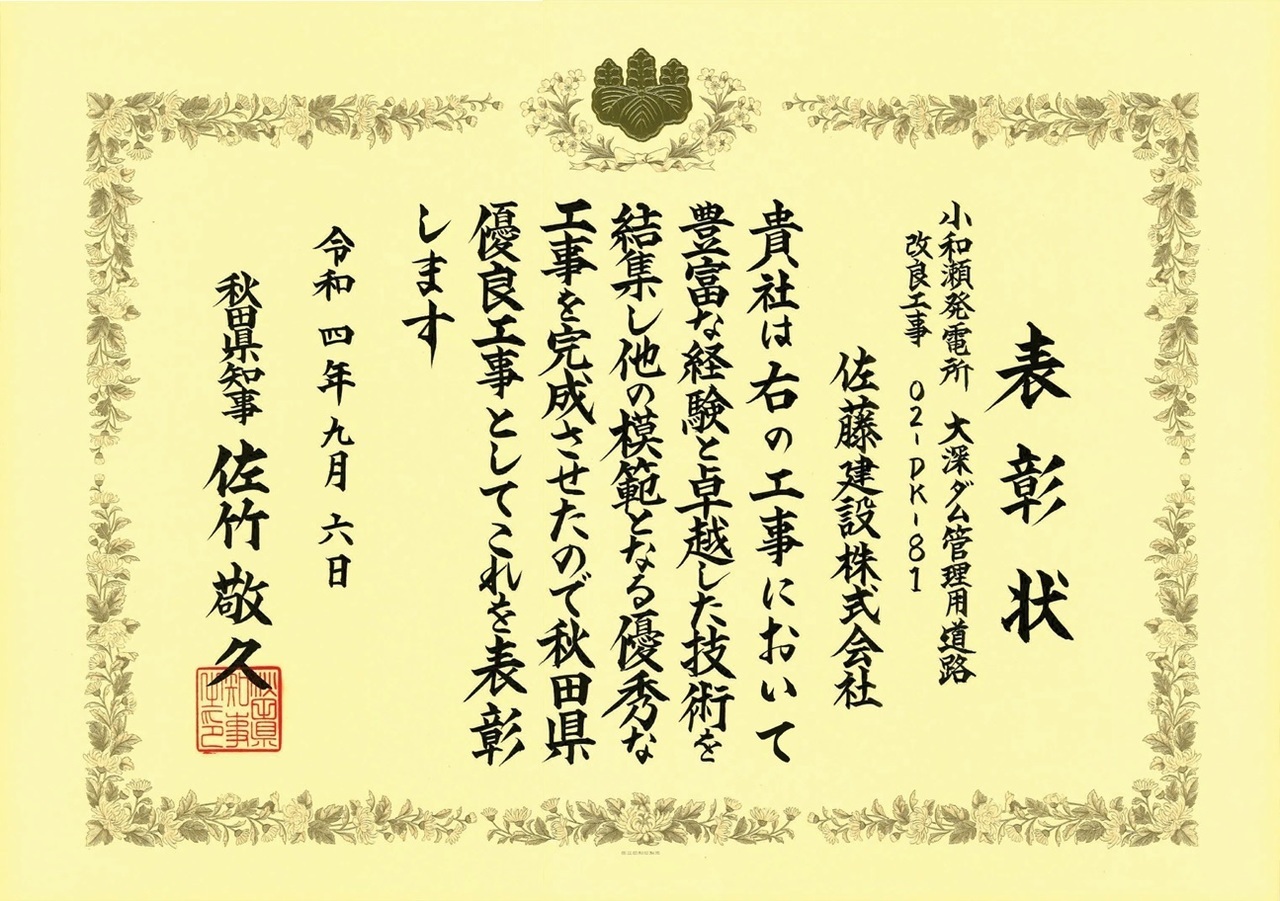 表彰状
小和瀬発電所 大深ダム管理用道路
改良工事 02-DK-81
佐藤建設株式会社
貴社は右の工事において
豊富な経験と卓越した技術を
結集し他の模範となる優秀な
工事を完成させたので秋田県
優良工事としてこれを表彰
します
令和四年九月六日
秋田県知事 佐竹敬久